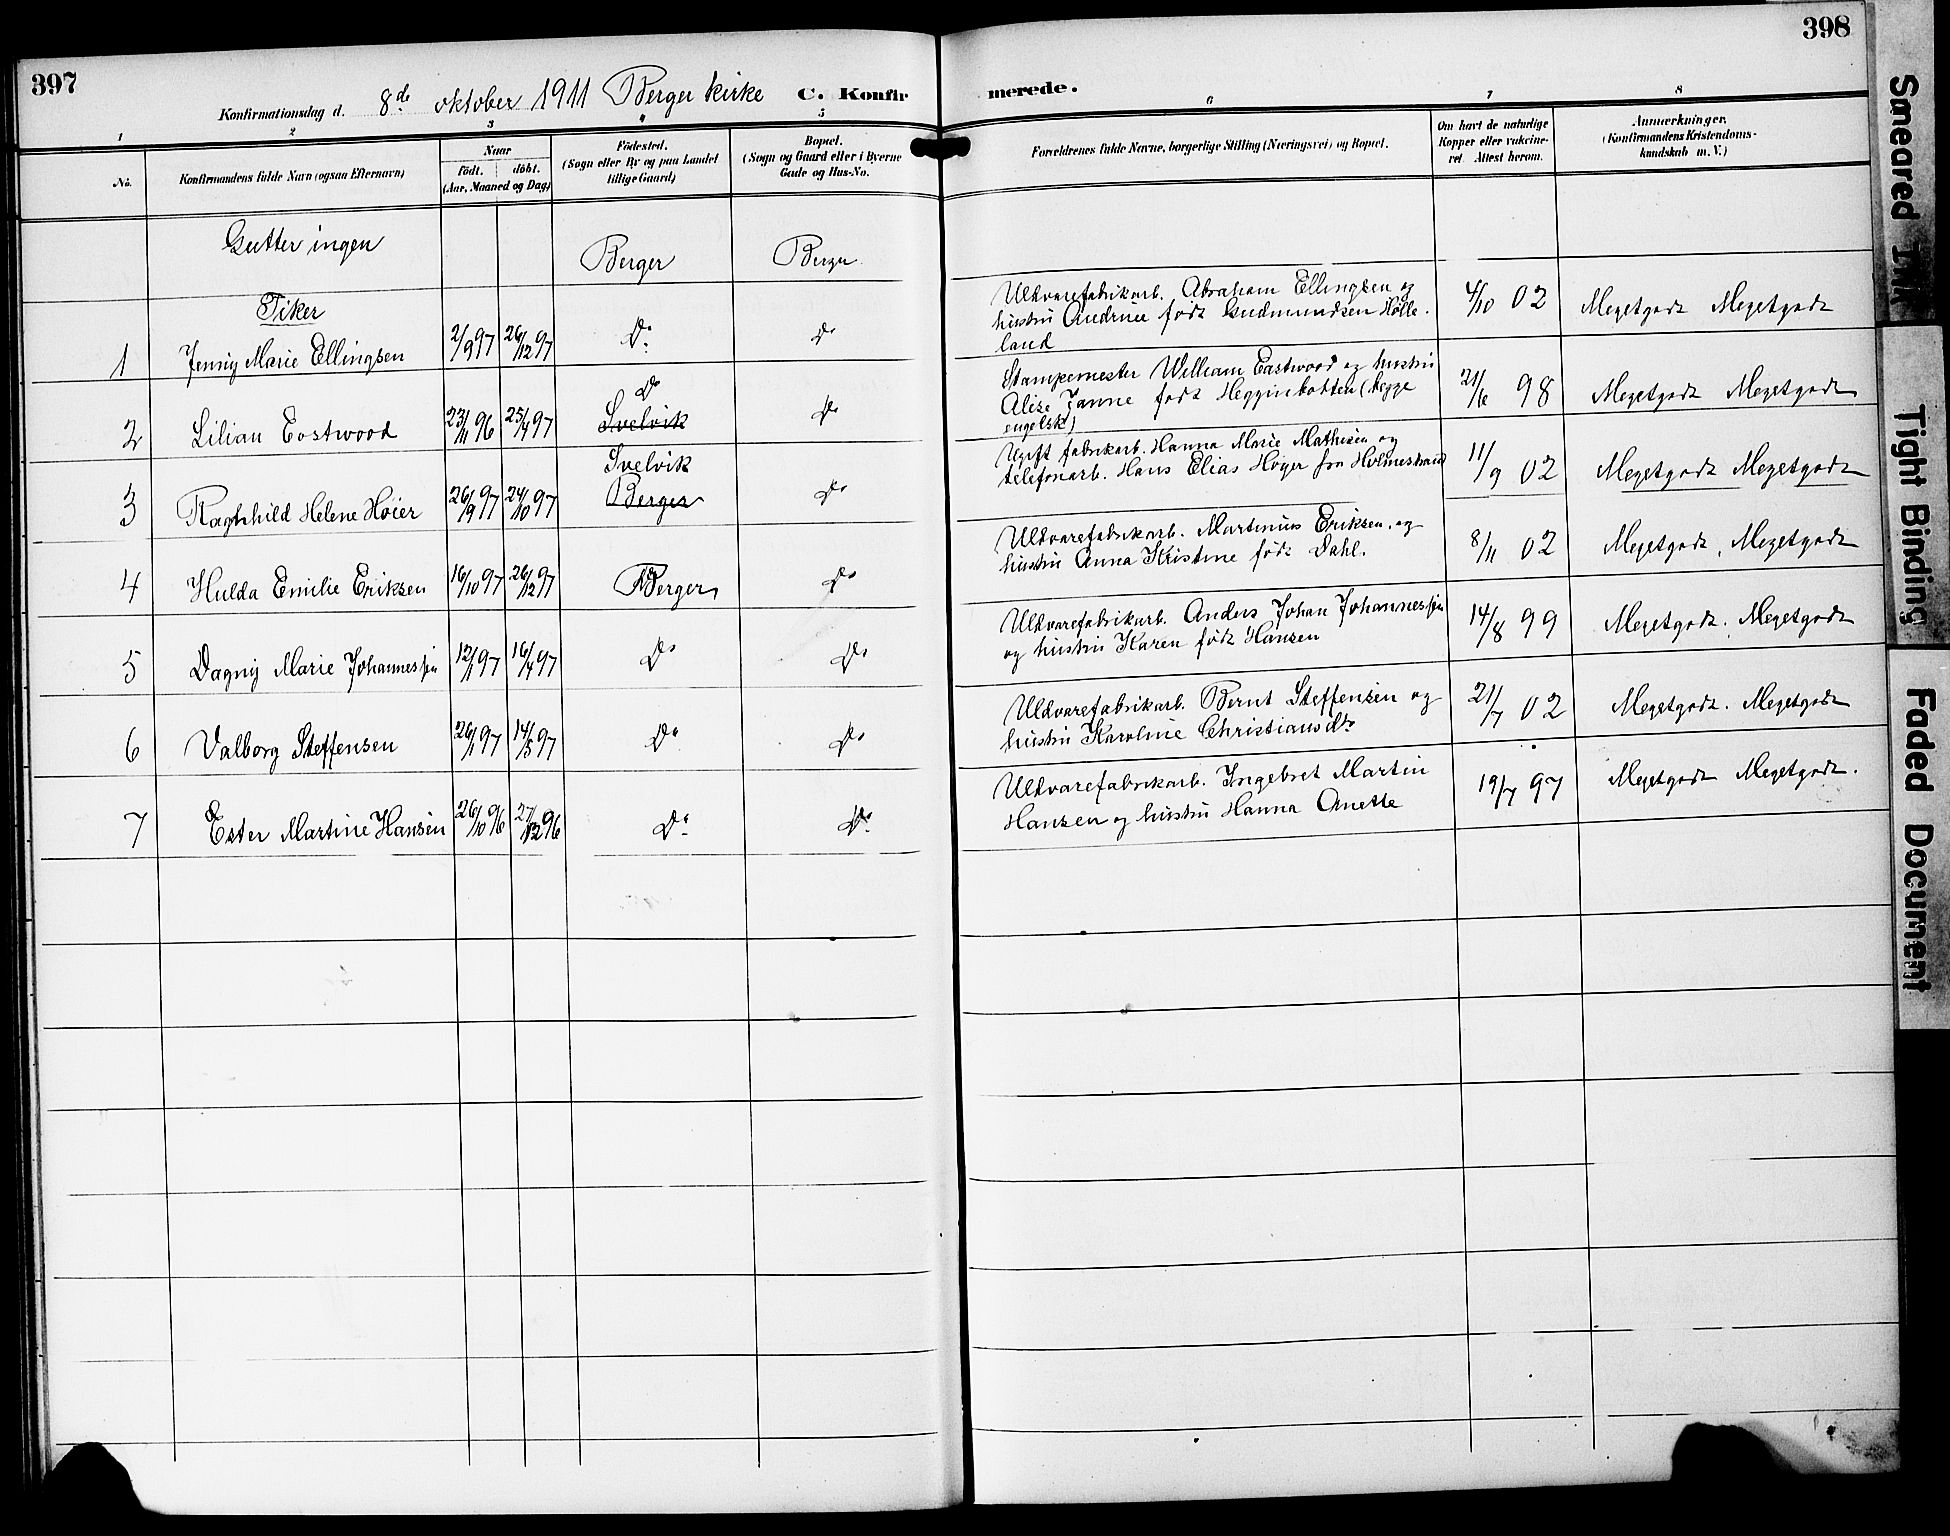 397
398
Konfirmationsdag d. 8de oktober 1911 Berger kirke C. Konfir merede.
1 2 3 4 5 6 7 8
No.
Konfirmandens fulde Navn (ogsaa Efternavn)
Naar
födt. döbt.
(Aar, Maaned og Dag)
Födested.
(Sogn eller By og paa Landet
tillige Gaard)
Bopæl.
(Sogn og Gaard eller i Byerne
Gade og Hus-No.
Forældrenes fulde Navne, borgerlige Stilling (Næringsvei) og Bopæl.
Om havt de naturlige
Kopper eller vakcine-
ret. Attest herom.
Anmærkninger.
(Konfirmandens Kristendoms-
kundskab m. V.)
Gutter ingen Berger Berger
Piker
1 Jenny Marie Ellingsen 2/9 97 26/12 97 Do Do
Uldvarefabrikarb. Abraham Ellingsen og
hustru Andrine født Gudmundsen Hølle-
land
4/10 02 Megetgodt Megetgodt
2 Lilian Eastwood 23/11 96 25/4 97 Do Svelvik Do
Stampemester William Eastwood og hustru
Alise Janne født Hegginbotten (begge
engelsk)
21/6 98 Megetgodt Megetgodt
3 Raghhild Helene Høier 26/9 97 24/10 97 Svelvik Berger Do
Ugift fabrikarb. Hanna Marie Mathisen og
telefonarb. Hans Elias Høyer fra Holmestrand
11/9 02 Megetgodt Megetgodt
4 Hulda Emilie Eriksen 16/10 97 26/12 97 Berger Do
Uldvarefabrikarb. Martinius Eriksen og
hustru Anna Kristine født Dahl.
8/11 02 Megetgodt, Megetgodt
5 Dagny Marie Johannessen 12/1 97 16/4 97 Do Do
Uldvarefabrikarb. Anders Johan Johannessen
og hustru Karen født Hansen
14/8 99 Megetgodt. Megetgodt
6 Valborg Steffensen 26/1 97 14/3 97 Do Do
Uldvarefabrikarb. Bernt Steffensen og
hustru Karoline Christiansdtr
21/7 02 Megetgodt. Megetgodt
7 Ester Martine Hansen 26/10 96 27/12 96 Do Do
Uldvarefabrikarb. Ingebret Martin
Hansen og hustru Hanna Anette
19/7 97 Megetgodt Megetgodt.
Smeared Ink
Tight Binding
Faded Document